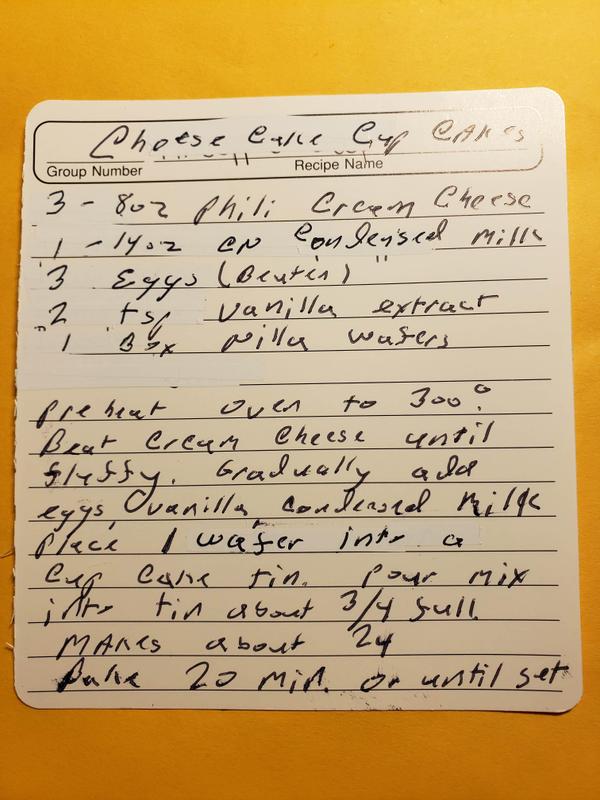 Cheese Cake Cup CAKes
Group Number Recipe Name
3 - 8oz Phili Cream Cheese
1 - 14oz cn Condensed Milk
3 Eggs (Beaten)
2 tsp vanilla extract
1 Box Nilla wafers
Preheat oven to 300°
Beat Cream Cheese until
fluffy. Gradually add
eggs, vanilla, condensed Milk
Place 1 wafer into a
Cup Cake tin. Pour mix
into tin about 3/4 full
MAKes about 24
Bake 20 min. or until set